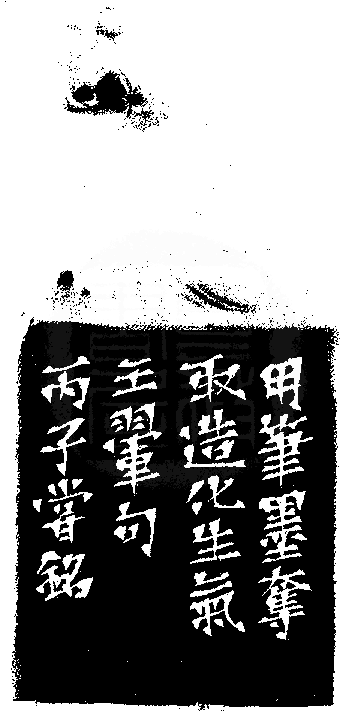 用筆墨奪
取造化生氣
王翬句
丙子嘗銘